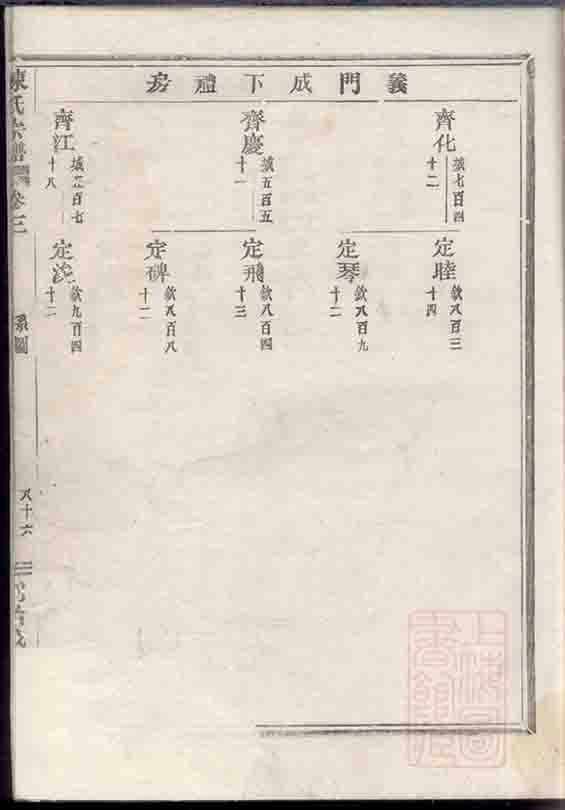 義門成下禮房
齊化
城七百四
十二
齊慶
城五百五
十一
齊江
城五百七
十八
定睦
欽八百三
十四
定琴
欽八百九
十二
定飛
欽八百四
十三
定碑
欽八百八
十二
定
欽九百四
十二
陳氏宗譜
卷三
系圖
八十六
上海圖
書館藏